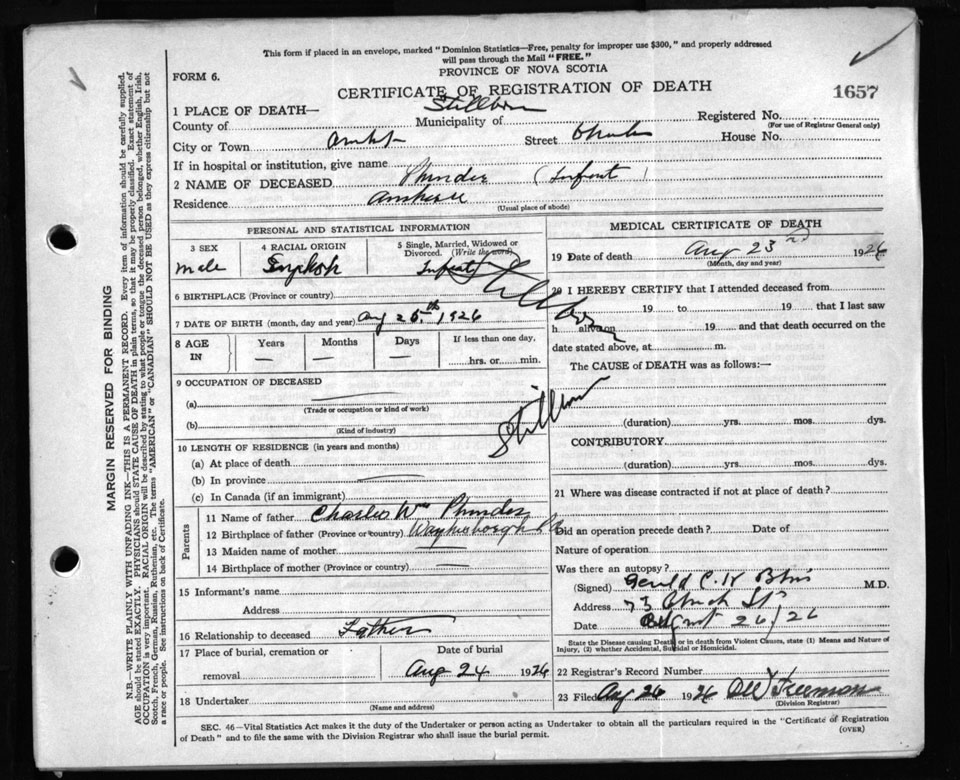 This form if placed in an envelope, marked "Dominion Statistics—Free, penalty for improper use $300," and properly addressed
will pass through the Mail "FREE."
PROVINCE OF NOVA SCOTIA
FORM 6.
CERTIFICATE OF REGISTRATION OF DEATH
1657
Stillborn
1 PLACE OF DEATH—
County of Municipality of Registered No.
(For use of Registrar General only)
City or Town Street House No.
If in hospital or institution, give name
2 NAME OF DECEASED (Infant)
Residence Amherst
(Usual place of abode)
PERSONAL AND STATISTICAL INFORMATION
3 SEX 4 RACIAL ORIGIN 5 Single, Married, Widowed or
Divorced. (Write the word)
male English Infant
Stillborn
6 BIRTHPLACE (Province or country)
7 DATE OF BIRTH (month, day and year) Aug 1926
8 AGE IN Years Months Days If less than one day,
— — — hrs. or min.
9 OCCUPATION OF DECEASED
(a)
(Trade or occupation or kind of work)
(b)
(Kind of industry)
10 LENGTH OF RESIDENCE (in years and months)
(a) At place of death
(b) In province
(c) In Canada (if an immigrant)
Parents
11 Name of father Charles Wm
12 Birthplace of father (Province or country)
13 Maiden name of mother
14 Birthplace of mother (Province or country)
15 Informant's name
Address
16 Relationship to deceased Father
17 Place of burial, cremation or Date of burial
removal Aug 24 1926
18 Undertaker
(Name and address)
MEDICAL CERTIFICATE OF DEATH
19 Date of death Aug 23rd 1926
(Month, day and year)
20 I HEREBY CERTIFY that I attended deceased from
19 to 19 that I last saw
h alive on 19 and that death occurred on
date stated above, at m.
The CAUSE of DEATH was as follows:—
Stillborn
(duration) yrs. mos. dys.
CONTRIBUTORY
(duration) yrs. mos. dys.
21 Where was disease contracted if not at place of death?
Did an operation precede death? Date of
Nature of operation
Was there an autopsy?
(Signed) Gerald C. W. M.D.
Address 73 Church St
Date August 26/26
State the Disease causing Death or in death from Violent Causes, state (1) Means and Nature of
Injury, (2) whether Accidental, Suicidal or Homicidal.
22 Registrar's Record Number
23 Filed Aug 26 1926 Freeman
(Division Registrar)
SEC. 46—Vital Statistics Act makes it the duty of the Undertaker or person acting as Undertaker to obtain all the particulars required in the "Certificate of Registration
of Death" and to file the same with the Division Registrar who shall issue the burial permit.
(OVER)
MARGIN RESERVED FOR BINDING
N.B.—WRITE PLAINLY WITH UNFADING INK—THIS IS A PERMANENT RECORD. Every item of information should be carefully supplied.
AGE should be stated EXACTLY. PHYSICIANS should STATE CAUSE OF DEATH in plain terms, so that it may be properly classified. Exact statement of
OCCUPATION is very important. RACIAL ORIGIN will be described by stating to what people or tongue the deceased person belonged, whether English, Irish,
Scotch, French, German, Russian, Ruthenian, etc. The terms "AMERICAN" or "CANADIAN" SHOULD NOT BE USED as they express citizenship but not
a race or people. See instructions on back of Certificate.